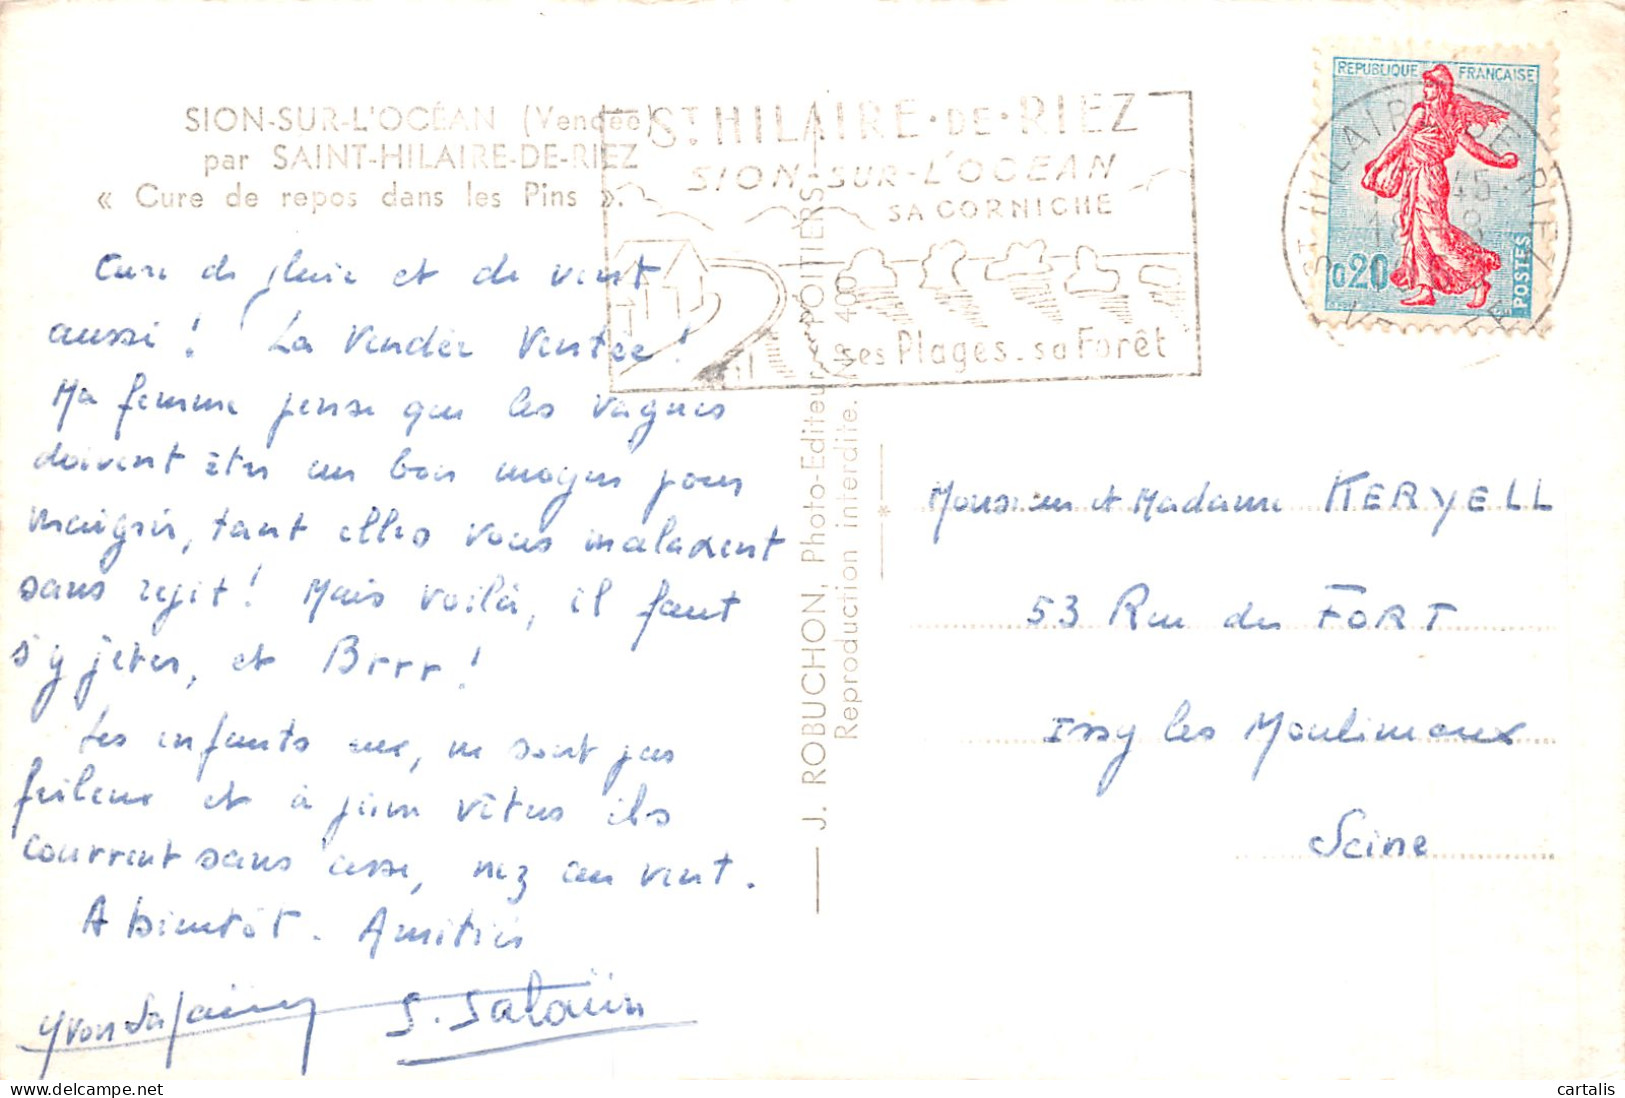 SION-SUR-L'OCÉAN (Vendée)
par SAINT-HILAIRE-DE-RIEZ
« Cure de repos dans les Pins ».
Cure de pluie et de vent
aussi ! La Vendée Ventée !
Ma femme pense que les vagues
doivent être un bon moyen pour
maigrir, tant elles vous malaxent
sans répit ! Mais voilà, il faut
s'y jeter, et Brrr !
Les enfants eux, ne sont pas
frileux et à peine vêtus ils
courrent sans cesse, nez au vent.
A bientôt. Amitiés
Yvon Salaün
S. Salaün
ST HILAIRE-DE-RIEZ
SION-SUR-L'OCEAN
SA CORNICHE
ses Plages - sa Forêt
J. ROBUCHON, Photo-Editeur POITIERS
Reproduction interdite. N° 400
REPUBLIQUE FRANÇAISE
0,20
POSTES
ST HILAIRE DE RIEZ
Monsieur et Madame KERYELL
53 Rue du FORT
Issy les Moulineaux
Seine
delcampe.net
cartalis